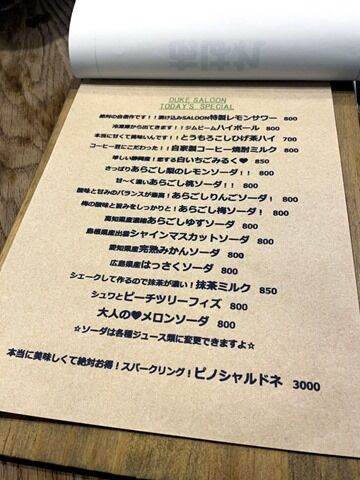 DUKE SALOON
TODAY'S SPECIAL
絶対の自信作です!!漬け込みSALOON特製レモンサワー 800
冷凍庫から出てきます!!ジムビームハイボール 800
本当に甘くて美味いんです!!とうもろこしひげ茶ハイ 700
コーヒー豆にこだわった!!自家製コーヒー焼酎ミルク 800
珍しい静岡産!恋する白いちごみるく♥ 850
さっぱりあらごし梨のレモンソーダ!! 800
甘〜く濃いあらごし桃ソーダ!! 800
酸味と甘みのバランスが最高!あらごしりんごソーダ! 800
梅の酸味と旨みをしっかりと!あらごし梅ソーダ! 800
高知県産濃縮あらごしゆずソーダ 800
島根県産出雲シャインマスカットソーダ 800
愛知県産完熟みかんソーダ 800
広島県産はっさくソーダ 800
シェークして作るので抹茶が濃い!抹茶ミルク 850
シュワとピーチツリーフィズ 800
大人の♥メロンソーダ 800
☆ソーダは各種ジュース類に変更できますよ☆
本当に美味しくて絶対お得!スパークリング!ピノシャルドネ 3000